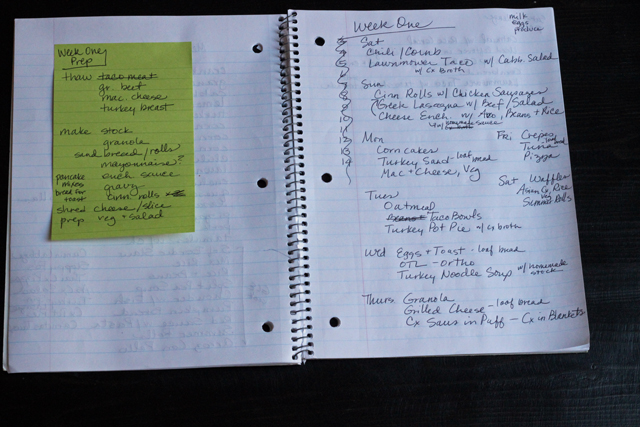 Week One
Prep
thaw taco meat
gr. beef
mac cheese
turkey breast
make stock
granola
sand bread/rolls
mayonnaise?
pancake mixes
ench sauce
bread for toast
gravy
cinn rolls
shred cheese/slice
prep veg + salad
Week One
milk
eggs
produce
Sat
Chili/Cornb
Lawnmower Taco w/ Cabb. Salad
w/ Cx Broth
Sun
Cinn Rolls w/ Chicken Sausages
Greek Lasagna w/ Beef/Salad
Cheese Ench w/ Avo, Beans + Rice
w/ sauce
Mon
Corn cakes
Turkey Sand - loaf bread
Mac + Cheese, Veg
Tues
Oatmeal
Taco Bowls
Turkey Pot Pie w/ cx broth
Wed Eggs + Toast - loaf bread
OTL - Ortho
Turkey Noodle Soup w/ homemade stock
Thurs Granola
Grilled Cheese - loaf bread
Cx Saus in Puff - Cx in Blankets
Fri Crepes
Tuna loaf bread
Pizza
Sat Waffles
Rice
Summer Rolls